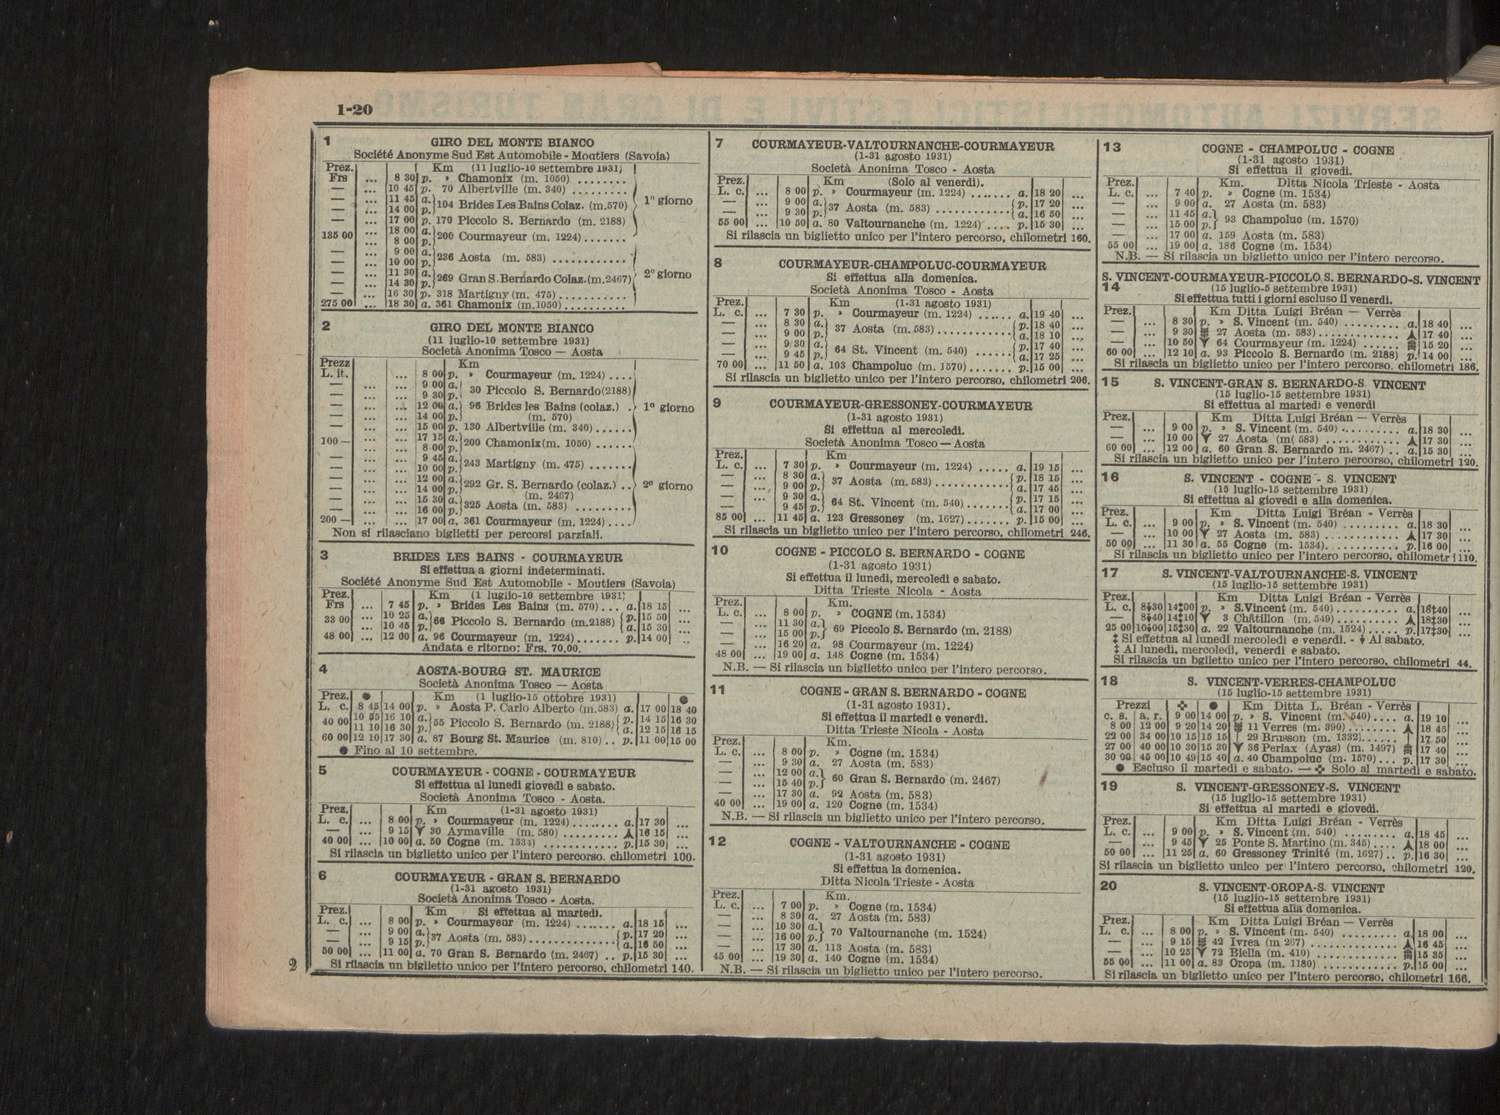 1-20
1 GIRO DEL MONTE BIANCO
Société Anonyme Sud Est Automobile - Moutiers (Savoia)
Prez. Km (11 luglio-10 settembre 1931)
Frs ... 8 30 p. » Chamonix (m. 1050) ........
— ... 10 45 p. 70 Albertville (m. 340) ........
— ... 11 45 a. 104 Brides Les Bains Colaz. (m.570) 1º giorno
— ... 14 00 p.
— ... 17 00 p. 170 Piccolo S. Bernardo (m. 2188)
135 00 ... 18 00 a. 200 Courmayeur (m. 1224).......
8 00 p.
— ... 9 00 a. 236 Aosta (m. 583) ...........
— ... 10 00 p.
— ... 11 30 a. 269 Gran S. Bernardo Colaz.(m.2467) 2º giorno
— ... 14 30 p.
— ... 16 30 p. 318 Martigny (m. 475) ........
275 00 ... 18 30 a. 361 Chamonix (m.1050).........
2 GIRO DEL MONTE BIANCO
(11 luglio-10 settembre 1931)
Società Anonima Tosco — Aosta
Prezz Km
L. it. ... 8 00 p. » Courmayeur (m. 1224) ....
— ... 9 00 a. 30 Piccolo S. Bernardo(2188)
— ... 9 30 p.
— ... 12 00 a. 96 Brides les Bains (colaz.) . 1º giorno
— ... 14 00 p. (m. 570)
— ... 15 00 p. 130 Albertville (m. 340)......
100 — ... 17 15 a. 200 Chamonix(m. 1050) ......
— ... 8 00 p.
— ... 9 45 a. 243 Martigny (m. 475) .......
— ... 10 00 p.
— ... 12 00 a. 292 Gr. S. Bernardo (colaz.) .. 2º giorno
— ... 14 00 p. (m. 2467)
— ... 15 30 a. 325 Aosta (m. 583) ........
— ... 16 00 p.
200 — ... 17 00 a. 361 Courmayeur (m. 1224)....
Non si rilasciano biglietti per percorsi parziali.
3 BRIDES LES BAINS - COURMAYEUR
Si effettua a giorni indeterminati.
Société Anonyme Sud Est Automobile - Moutiers (Savoia)
Prez. Km (1 luglio-10 settembre 1931)
Frs ... 7 45 p. » Brides Les Bains (m. 570)... a. 18 15 ...
33 00 ... 10 25 a. 66 Piccolo S. Bernardo (m.2188) p. 15 50 ...
... 10 45 p. a. 15 30 ...
48 00 ... 12 00 a. 96 Courmayeur (m. 1224)....... p. 14 00 ...
Andata e ritorno: Frs. 70,00.
4 AOSTA-BOURG ST. MAURICE
Società Anonima Tosco — Aosta
Prez. ● Km (1 luglio-15 ottobre 1931) ●
L. c. 8 45 14 00 p. » Aosta P. Carlo Alberto (m.583) a. 17 00 18 40
40 00 10 55 16 10 a. 55 Piccolo S. Bernardo (m. 2188) p. 14 15 16 30
11 10 16 30 p. a. 12 15 16 15
60 00 12 10 17 30 a. 87 Bourg St. Maurice (m. 810).. p. 11 00 15 00
● Fino al 10 settembre.
5 COURMAYEUR - COGNE - COURMAYEUR
Si effettua al lunedì giovedì e sabato.
Società Anonima Tosco - Aosta.
Prez. Km (1-31 agosto 1931)
L. c. ... 8 00 p. » Courmayeur (m. 1224)....... a. 17 30 ...
— ... 9 15 30 Aymaville (m. 580) ......... 16 15 ...
40 00 ... 10 00 a. 50 Cogne (m. 1534) .......... p. 15 30 ...
Si rilascia un biglietto unico per l'intero percorso. chilometri 100.
6 COURMAYEUR - GRAN S. BERNARDO
(1-31 agosto 1931)
Società Anonima Tosco - Aosta.
Prez. Km Si effettua al martedì.
L. c. ... 8 00 p. » Courmayeur (m. 1224) ....... a. 18 15 ...
— ... 9 00 a. 37 Aosta (m. 583)............. p. 17 20 ...
— ... 9 15 p. a. 16 50 ...
50 00 ... 11 00 a. 70 Gran S. Bernardo (m. 2467) .. p. 15 30 ...
Si rilascia un biglietto unico per l'intero percorso, chilometri 140.
2
7 COURMAYEUR-VALTOURNANCHE-COURMAYEUR
(1-31 agosto 1931)
Società Anonima Tosco - Aosta
Prez. Km (Solo al venerdì).
L. c. ... 8 00 p. » Courmayeur (m. 1224) ...... a. 18 20 ...
— ... 9 00 a. 37 Aosta (m. 583) ........... p. 17 20 ...
— ... 9 30 p. a. 16 50 ...
55 00 ... 10 50 a. 80 Valtournanche (m. 1224).... p. 15 30 ...
Si rilascia un biglietto unico per l'intero percorso, chilometri 160.
8 COURMAYEUR-CHAMPOLUC-COURMAYEUR
Si effettua alla domenica.
Società Anonima Tosco - Aosta
Prez. Km (1-31 agosto 1931)
L. c. ... 7 30 p. » Courmayeur (m. 1224) ...... a. 19 40 ...
— ... 8 30 a. 37 Aosta (m. 583)........... p. 18 40 ...
— ... 9 00 p. a. 18 10 ...
— ... 9 30 a. 64 St. Vincent (m. 540) ...... p. 17 40 ...
— ... 9 45 p. a. 17 25 ...
70 00 ... 11 50 a. 103 Champoluc (m. 1570)....... p. 15 00 ...
Si rilascia un biglietto unico per l'intero percorso, chilometri 206.
9 COURMAYEUR-GRESSONEY-COURMAYEUR
(1-31 agosto 1931)
Si effettua al mercoledì.
Società Anonima Tosco — Aosta
Prez. Km
L. c. ... 7 30 p. » Courmayeur (m. 1224) ..... a. 19 15 ...
— ... 8 30 a. 37 Aosta (m. 583)........... p. 18 15 ...
— ... 9 00 p. a. 17 45 ...
— ... 9 30 a. 64 St. Vincent (m. 540)...... p. 17 15 ...
— ... 9 45 p. a. 17 00 ...
85 00 ... 11 45 a. 123 Gressoney (m. 1627)....... p. 15 00 ...
Si rilascia un biglietto unico per l'intero percorso, chilometri 246.
10 COGNE - PICCOLO S. BERNARDO - COGNE
(1-31 agosto 1931)
Si effettua il lunedì, mercoledì e sabato.
Ditta Trieste Nicola - Aosta
Prez. Km.
L. c. ... 8 00 p. » COGNE (m. 1534)
— ... 11 30 a. 69 Piccolo S. Bernardo (m. 2188)
— ... 15 00 p.
— ... 16 20 a. 98 Courmayeur (m. 1224)
48 00 ... 19 00 a. 148 Cogne (m. 1534)
N.B. — Si rilascia un biglietto unico per l'intero percorso.
11 COGNE - GRAN S. BERNARDO - COGNE
(1-31 agosto 1931).
Si effettua il martedì e venerdì.
Ditta Trieste Nicola - Aosta
Prez. Km.
L. c. ... 8 00 p. » Cogne (m. 1534)
— ... 9 30 a. 27 Aosta (m. 583)
— ... 12 00 a. 60 Gran S. Bernardo (m. 2467)
— ... 15 40 p.
— ... 17 30 a. 92 Aosta (m. 583)
40 00 ... 19 00 a. 120 Cogne (m. 1534)
N.B. — Si rilascia un biglietto unico per l'intero percorso.
12 COGNE - VALTOURNANCHE - COGNE
(1-31 agosto 1931)
Si effettua la domenica.
Ditta Nicola Trieste - Aosta
Prez. Km.
L. c. ... 7 00 p. » Cogne (m. 1534)
— ... 8 30 a. 27 Aosta (m. 583)
— ... 10 30 a. 70 Valtournanche (m. 1524)
— ... 16 00 p.
— ... 17 30 a. 113 Aosta (m. 583)
45 00 ... 19 30 a. 140 Cogne (m. 1534)
N.B. — Si rilascia un biglietto unico per l'intero percorso.
13 COGNE - CHAMPOLUC - COGNE
(1-31 agosto 1931)
Si effettua il giovedì.
Prez. Km. Ditta Nicola Trieste - Aosta
L. c. ... 7 40 p. » Cogne (m. 1534)
— ... 9 00 a. 27 Aosta (m. 583)
— ... 11 45 a. 93 Champoluc (m. 1570)
— ... 15 00 p.
— ... 17 00 a. 159 Aosta (m. 583)
55 00 ... 19 00 a. 186 Cogne (m. 1534)
N.B. — Si rilascia un biglietto unico per l'intero percorso.
S. VINCENT-COURMAYEUR-PICCOLO S. BERNARDO-S. VINCENT
14 (15 luglio-5 settembre 1931)
Si effettua tutti i giorni escluso il venerdì.
Prez. Km Ditta Luigi Bréan — Verrès
L. c. ... 8 30 p. » S. Vincent (m. 540) ......... a. 18 40 ...
— ... 9 30 27 Aosta (m. 583)............. 17 40 ...
— ... 10 50 64 Courmayeur (m. 1224) ...... 15 20 ...
60 00 ... 12 10 a. 93 Piccolo S. Bernardo (m. 2188) p. 14 00 ...
Si rilascia un biglietto unico per l'intero percorso. chilometri 186.
15 S. VINCENT-GRAN S. BERNARDO-S. VINCENT
(15 luglio-15 settembre 1931)
Si effettua al martedì e venerdì
Prez. Km Ditta Luigi Bréan — Verrès
L. c. ... 9 00 p. » S. Vincent (m. 540) .......... a. 18 30 ...
— ... 10 00 27 Aosta (m. 583) ............ 17 30 ...
60 00 ... 12 00 a. 60 Gran S. Bernardo m. 2467) .. a. 15 30 ...
Si rilascia un biglietto unico per l'intero percorso, chilometri 120.
16 S. VINCENT - COGNE - S. VINCENT
(15 luglio-15 settembre 1931)
Si effettua al giovedì e alla domenica.
Prez. Km Ditta Luigi Bréan - Verrès
L. c. ... 9 00 p. » S. Vincent (m. 540) ......... a. 18 30 ...
— ... 10 00 27 Aosta (m. 583) ............ 17 30 ...
50 00 ... 11 30 a. 55 Cogne (m. 1534)............ p. 16 00 ...
Si rilascia un biglietto unico per l'intero percorso, chilometri 110.
17 S. VINCENT-VALTOURNANCHE-S. VINCENT
(15 luglio-15 settembre 1931)
Prez. Km Ditta Luigi Bréan - Verrès
L. c. 8‡30 14‡00 p. » S.Vincent (m. 540)........... a. 18‡40 ...
— 8‡40 14‡10 3 Châtillon (m. 549)........... 18‡30 ...
25 00 10‡00 15‡30 a. 22 Valtournanche (m. 1524)..... p. 17‡30 ...
‡ Si effettua al lunedì mercoledì e venerdì. - Al sabato.
‡ Al lunedì, mercoledì, venerdì e sabato.
Si rilascia un bglietto unico per l'intero percorso, chilometri 44.
18 S. VINCENT-VERRES-CHAMPOLUC
(15 luglio-15 settembre 1931)
Prezzi ✣ ● Km Ditta L. Bréan - Verrès
c. s. a. r. 9 00 14 00 p. » S. Vincent (m. 540).... a. 19 10 ...
8 00 12 00 9 20 14 20 11 Verres (m. 390)........ 18 45 ...
22 00 34 00 10 15 15 15 29 Brusson (m. 1332)..... 17 50 ...
27 00 40 00 10 30 15 30 36 Periax (Ayas) (m. 1497) 17 40 ...
30 00 45 00 10 49 15 40 a. 40 Champoluc (m. 1570)... p. 17 30 ...
● Escluso il martedì e sabato. — ✣ Solo al martedì e sabato.
19 S. VINCENT-GRESSONEY-S. VINCENT
(15 luglio-15 settembre 1931)
Si effettua al martedì e giovedì.
Prez. Km Ditta Luigi Bréan - Verrès
L. c. ... 9 00 p. » S. Vincent (m. 540) ......... a. 18 45 ...
— ... 9 45 25 Ponte S. Martino (m. 345).... 18 00 ...
50 00 ... 11 25 a. 60 Gressoney Trinité (m. 1627).. p. 16 30 ...
Si rilascia un biglietto unico per l'intero percorso, chilometri 120.
20 S. VINCENT-OROPA-S. VINCENT
(15 luglio-15 settembre 1931)
Si effettua alla domenica.
Prez. Km Ditta Luigi Bréan — Verrès
L. c. ... 8 00 p. » S. Vincent (m. 540).......... a. 18 00 ...
— ... 9 15 42 Ivrea (m 267) .............. 16 45 ...
— ... 10 25 72 Biella (m. 410) ............. 15 35 ...
55 00 ... 11 00 a. 83 Oropa (m. 1180) ............ p. 15 00 ...
Si rilascia un biglietto unico per l'intero percorso, chilometri 166.